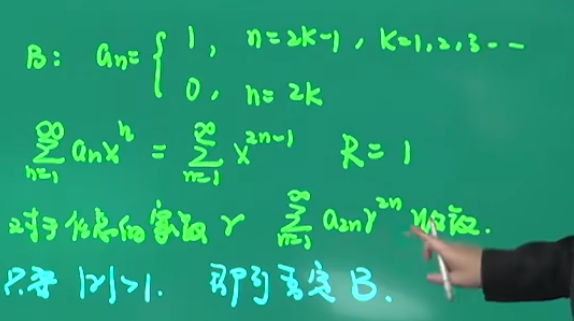 B: aₙ = { 1, n=2k-1, k=1,2,3···
0, n=2k
∑_{n=1}^{∞} aₙxⁿ = ∑_{n=1}^{∞} x^{2n-1} R=1
对于任意的实数 r ∑_{n=1}^{∞} a₂ₙr^{2n} 收敛.
只要 |r|>1. 即可否定 B.